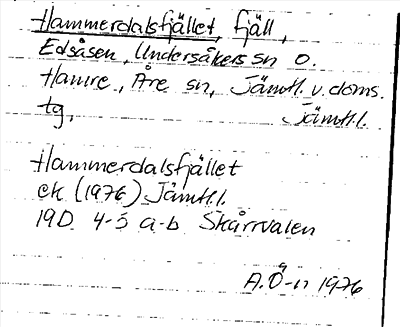 Hammerdalsfjället, fjäll,
Edsåsen, Undersåkers sn o.
Hamre, Åre sn, Jämtl. v. doms.
tg, Jämtl.l.
Hammerdalsfjället
ek (1976) Jämtl.l.
19D 4-5 a-b Skårrvalen
A.Ö-n 1976